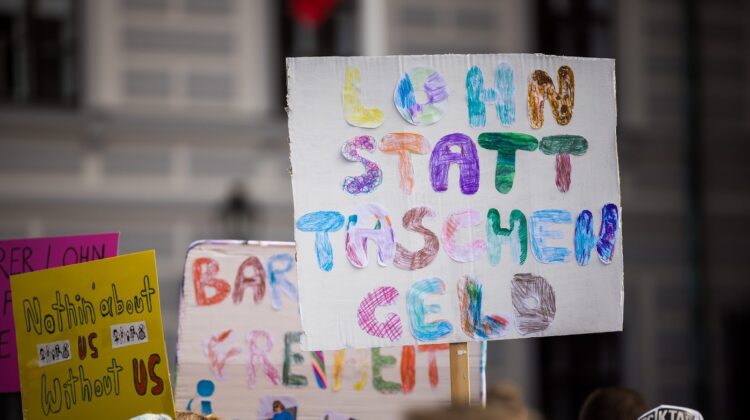 LOHN
STATT
TASCHEN
GELD
RER LOHN
Nothin' about
us
Without us
BAR
FREIHEIT